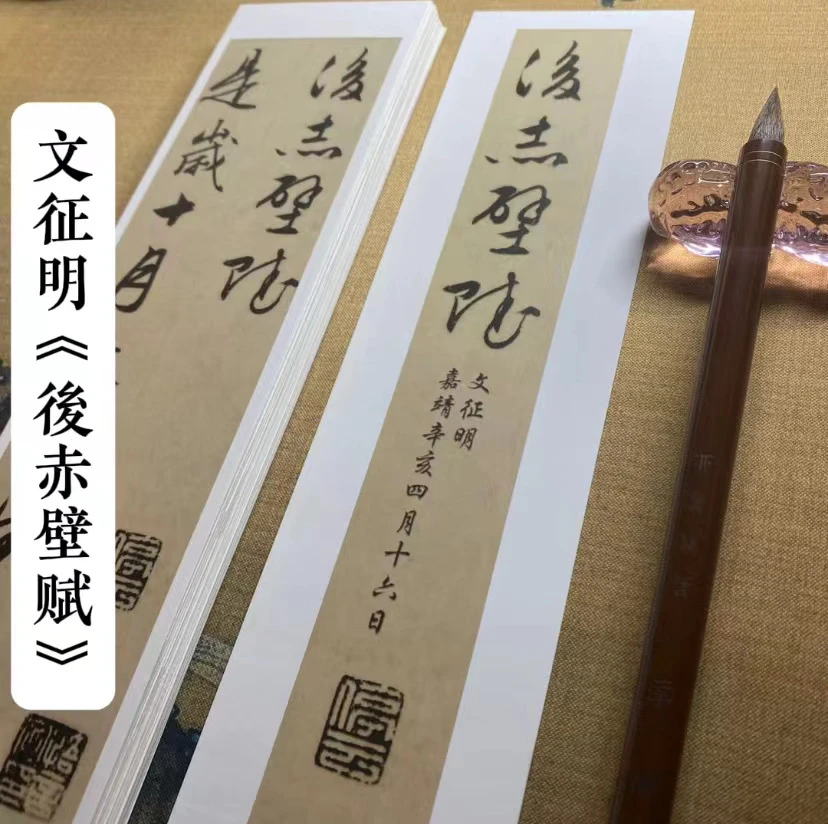 文征明《後赤壁赋》
後赤壁賦
是歲十月
後赤壁賦
文征明
嘉靖辛亥四月十六日